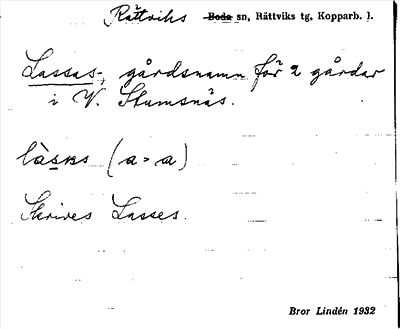 Rättviks ~~Boda~~ sn, Rättviks tg, Kopparb. l.
Lassas-, gårdsnamn för 2 gårdar
i V. Stumsnäs.
làsas (a = a)
Skrives Lasses.
Bror Lindén 1932